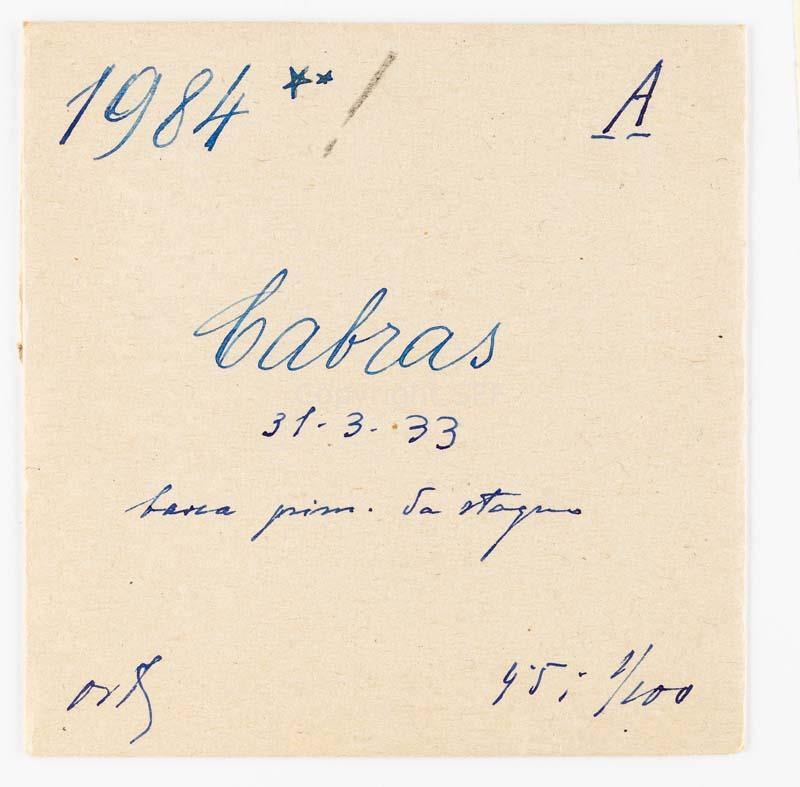 1984 ** / A
Cabras
31-3-33
barca prim. da stagno
4.5; 1/100